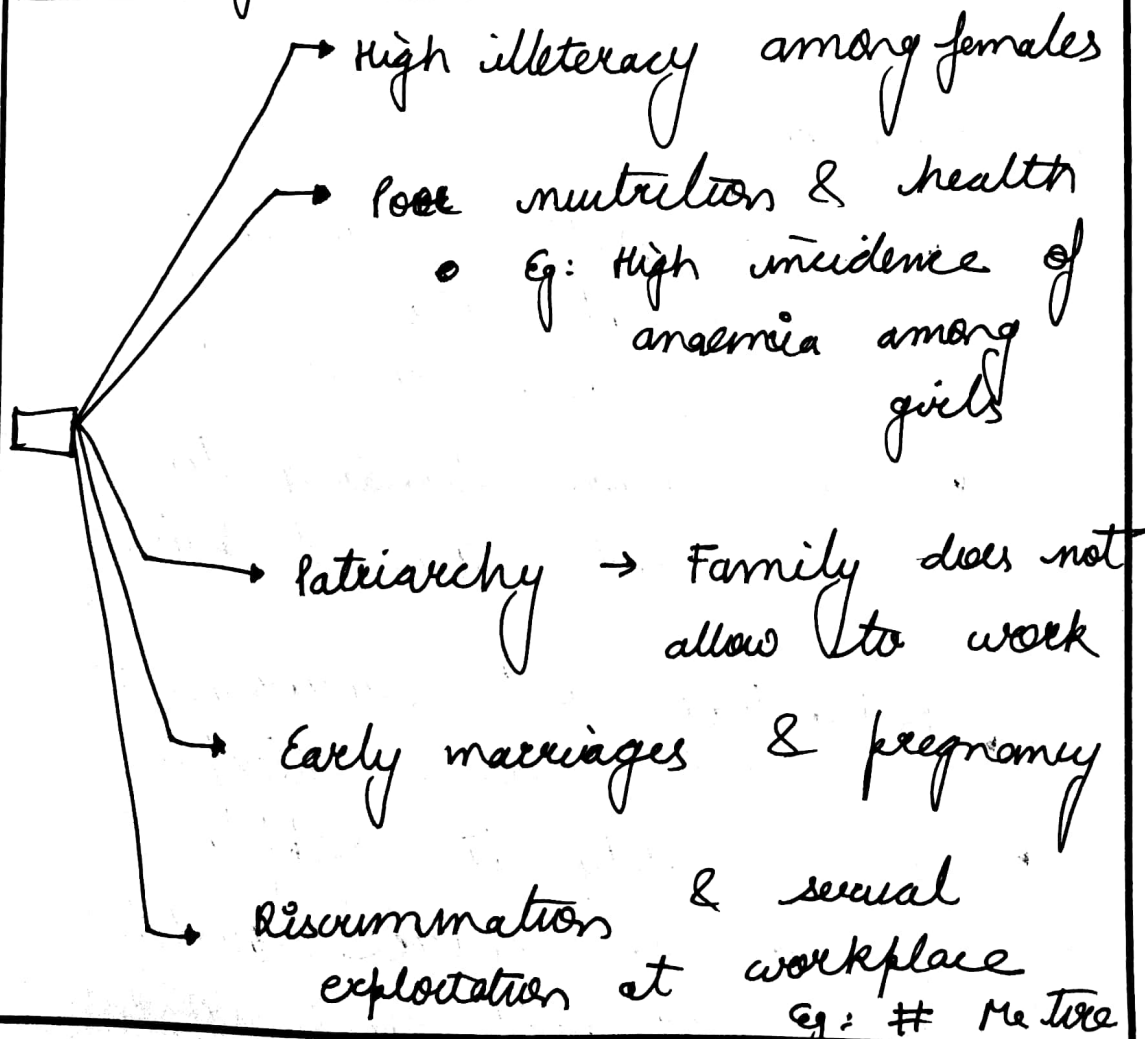 High illeteracy among females
Poor nutrition & health
• Eg: High incidence of
anaemia among
girls
Patriarchy → Family does not
allow to work
Early marriages & pregnancy
Discrimination & sexual
exploitation at workplace
Eg: # Me Too